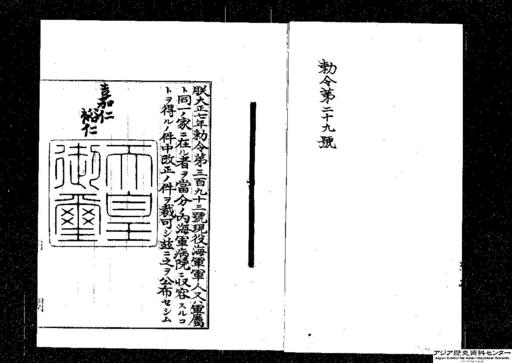 勅令第二十九號
朕大正七年勅令第三百九十三號現役海軍軍人又ハ軍屬
ト同一ノ家ニ在ル者ヲ當分ノ內海軍病院ニ收容スルコ
トヲ得ルノ件中改正ノ件ヲ裁可シ茲ニ之ヲ公布セシム
嘉仁
裕仁
天皇
御璽
アジア歴史資料センター
Japan Center for Asian Historical Records